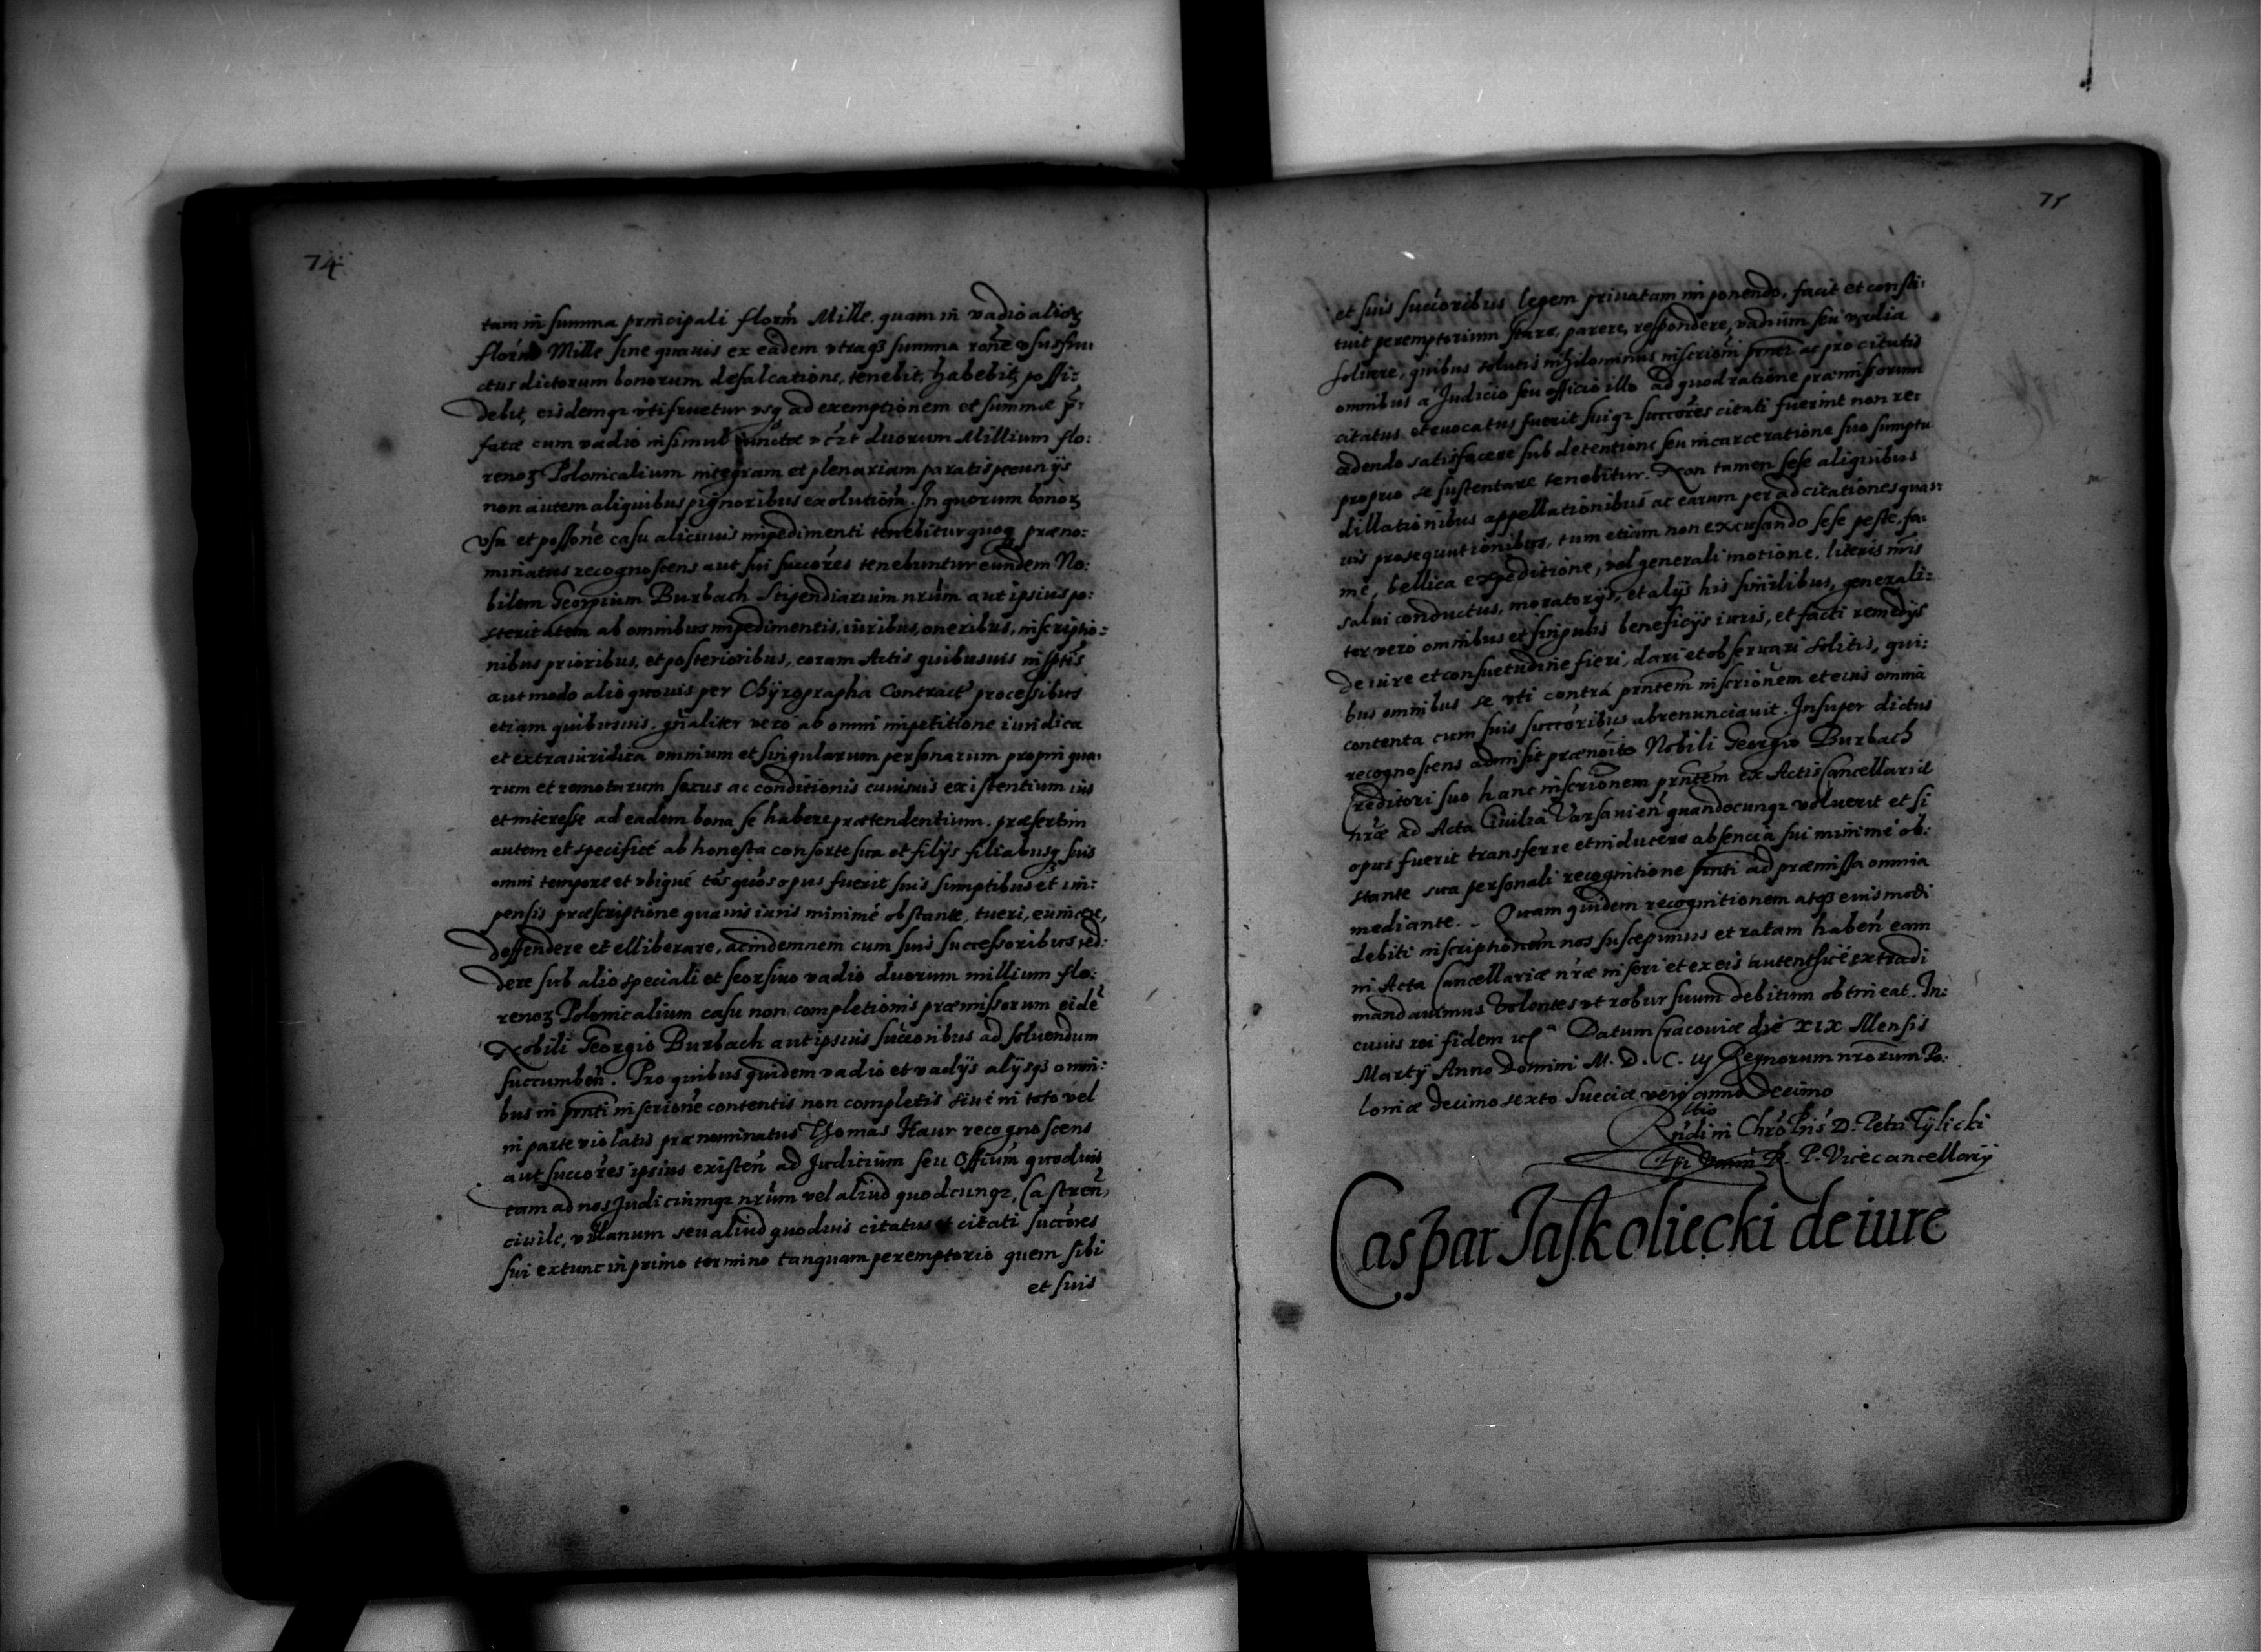 74
tam in summa principali floren̄ Mille. quam in vadio alioȝ
floren̄ Mille sine quauis ex eadem vtraqȝ summa rōne vsusfru:
ctus dictorum bonorum defalcatione, tenebit, habebit, possi:
debit, eisdemqȝ vtifruetur vsqȝ ad exemptionem et summæ p̄:
fatæ cum vadio insimul iunctæ vczt duorum Millium flo:
renoȝ Polonicalium integram et plenariam paratis pecunijs
non autem aliquibus pignoribus exolutiom̄. In quorum bonoȝ
vsu et possōne casu alicuius impedimenti tenebitur quoqȝ præno:
minatus recognoscens aut sui succōres tenebuntur eundem No:
bilem Georgium Burbach Stipendiarium nrūm aut ipsius po:
steritatem ab omnibus impedimentis, iuribus, oneribus, inscriptio:
nibus prioribus, et posterioribus, coram Actis quibusuis insptis
aut modo alio quouis per Chyrographa Contract' processibus
etiam quibusuis. gn̄aliter vero ab omni impetitione iuridica
et extraiuridica omnium et singularum personarum propinqua:
rum et remotarum sexus ac conditionis cuiusuis existentium ius
et interesse ad eadem bona se habere prætendentium. præsertim
autem et specificé ab honesta consorte sua et filijs filiabusqȝ suis
omni tempore et vbiqué tōs quōs opus fuerit suis sumptibus et im:
pensis præscriptione quauis iuris minimé obstante, tueri, euincere,
deffendere et elliberare, ac indemnem cum suis successoribus red:
dere sub alio speciali et seorsiuo vadio duorum millium flo:
renoȝ Polonicalium casu non completionis præmissorum eidē
Nobili Georgio Burbach aut ipsius succōribus ad soluendum
succumben̄. Pro quibus quidem vadio et vadijs alijsqȝ omni:
bus in prn̄ti inscriōne contentis non completis siue in toto vel
in parte violatis prænominatus Thomas Haur recognoscens
aut succōres ipsius existen̄ ad Juditium seu Offium̄ quoduis
tam ad nos Judiciumqȝ nrūm vel aliud quodcunqȝ, Castren̄,
ciuile, villanum seu aliud quoduis citatus et citati succōres
sui extunc in primo termino tanquam peremptorio quem sibi
et suis
75
et suis succōribus legem priuatam imponendo, facit et consti:
tuit peremptorium stare, parere, respondere, vadium seu vadia
soluere, quibus solutis nihilominus inscriōni prn̄ti ac pro citatis
omnibus a Judicio seu officio illo ad quod ratione præmissorum
citatus et euocatus fuerit suiqȝ succōres citati fuerint non re:
cedendo satisfacere sub detentione seu incarceratione suo sumptu
proprio se sustentare tenebitur. Non tamen sese aliquibus
dillationibus appellationibus ac earum per ad citationes quas:
uis prosequutionibus, tum etiam non excusando sese peste, fa:
me, bellica expeditione, vel generali motione, literis nr̄is
salui conductus, moratorijs, et alijs his similibus, generali:
ter vero omnibus et singulis beneficijs iuris, et facti remedijs
de iure et consuetudine fieri, dari et obseruari solitis, qui:
bus omnibus se vti contrá prn̄tem inscriōnem et eius omnia
contenta cum suis succōribus abrenunciauit. Insuper dictus
recognoscens admisit prænōito Nobili Georgio Burbach
Creditori suo hanc inscriōnem prn̄tem ex Actis Cancellariæ
nrǣ ad Acta Ciuilia Varsauien̄ quandocunqȝ voluerit et si
opus fuerit transferre et inducere absencia sui minimé ob:
stante sua personali recognitione prn̄ti ad præmissa omnia
mediante. Quam quidem recognitionem atqȝ eiusmodi
debiti inscriptionem nos suscepimus et ratam haben̄ eam
in Acta Cancellariæ nrǣ inseri et ex eis autenticé extradi
mandauimus Volentes vt robur suum debitum obtineat. In:
cuius rei fidem etcª Datum Cracouiæ die XIX Mensis
Martij Anno Domini M. D. C. iij Regnorum nrōrum Po:
loniæ decimo sexto Sueciæ vero anno Decimo
ltio
Rn̄di in Chrō Pris̄ D. Petri Tylicki
Epi R. P. Vicecancellarij
Caspar Jaskoliecki de iure